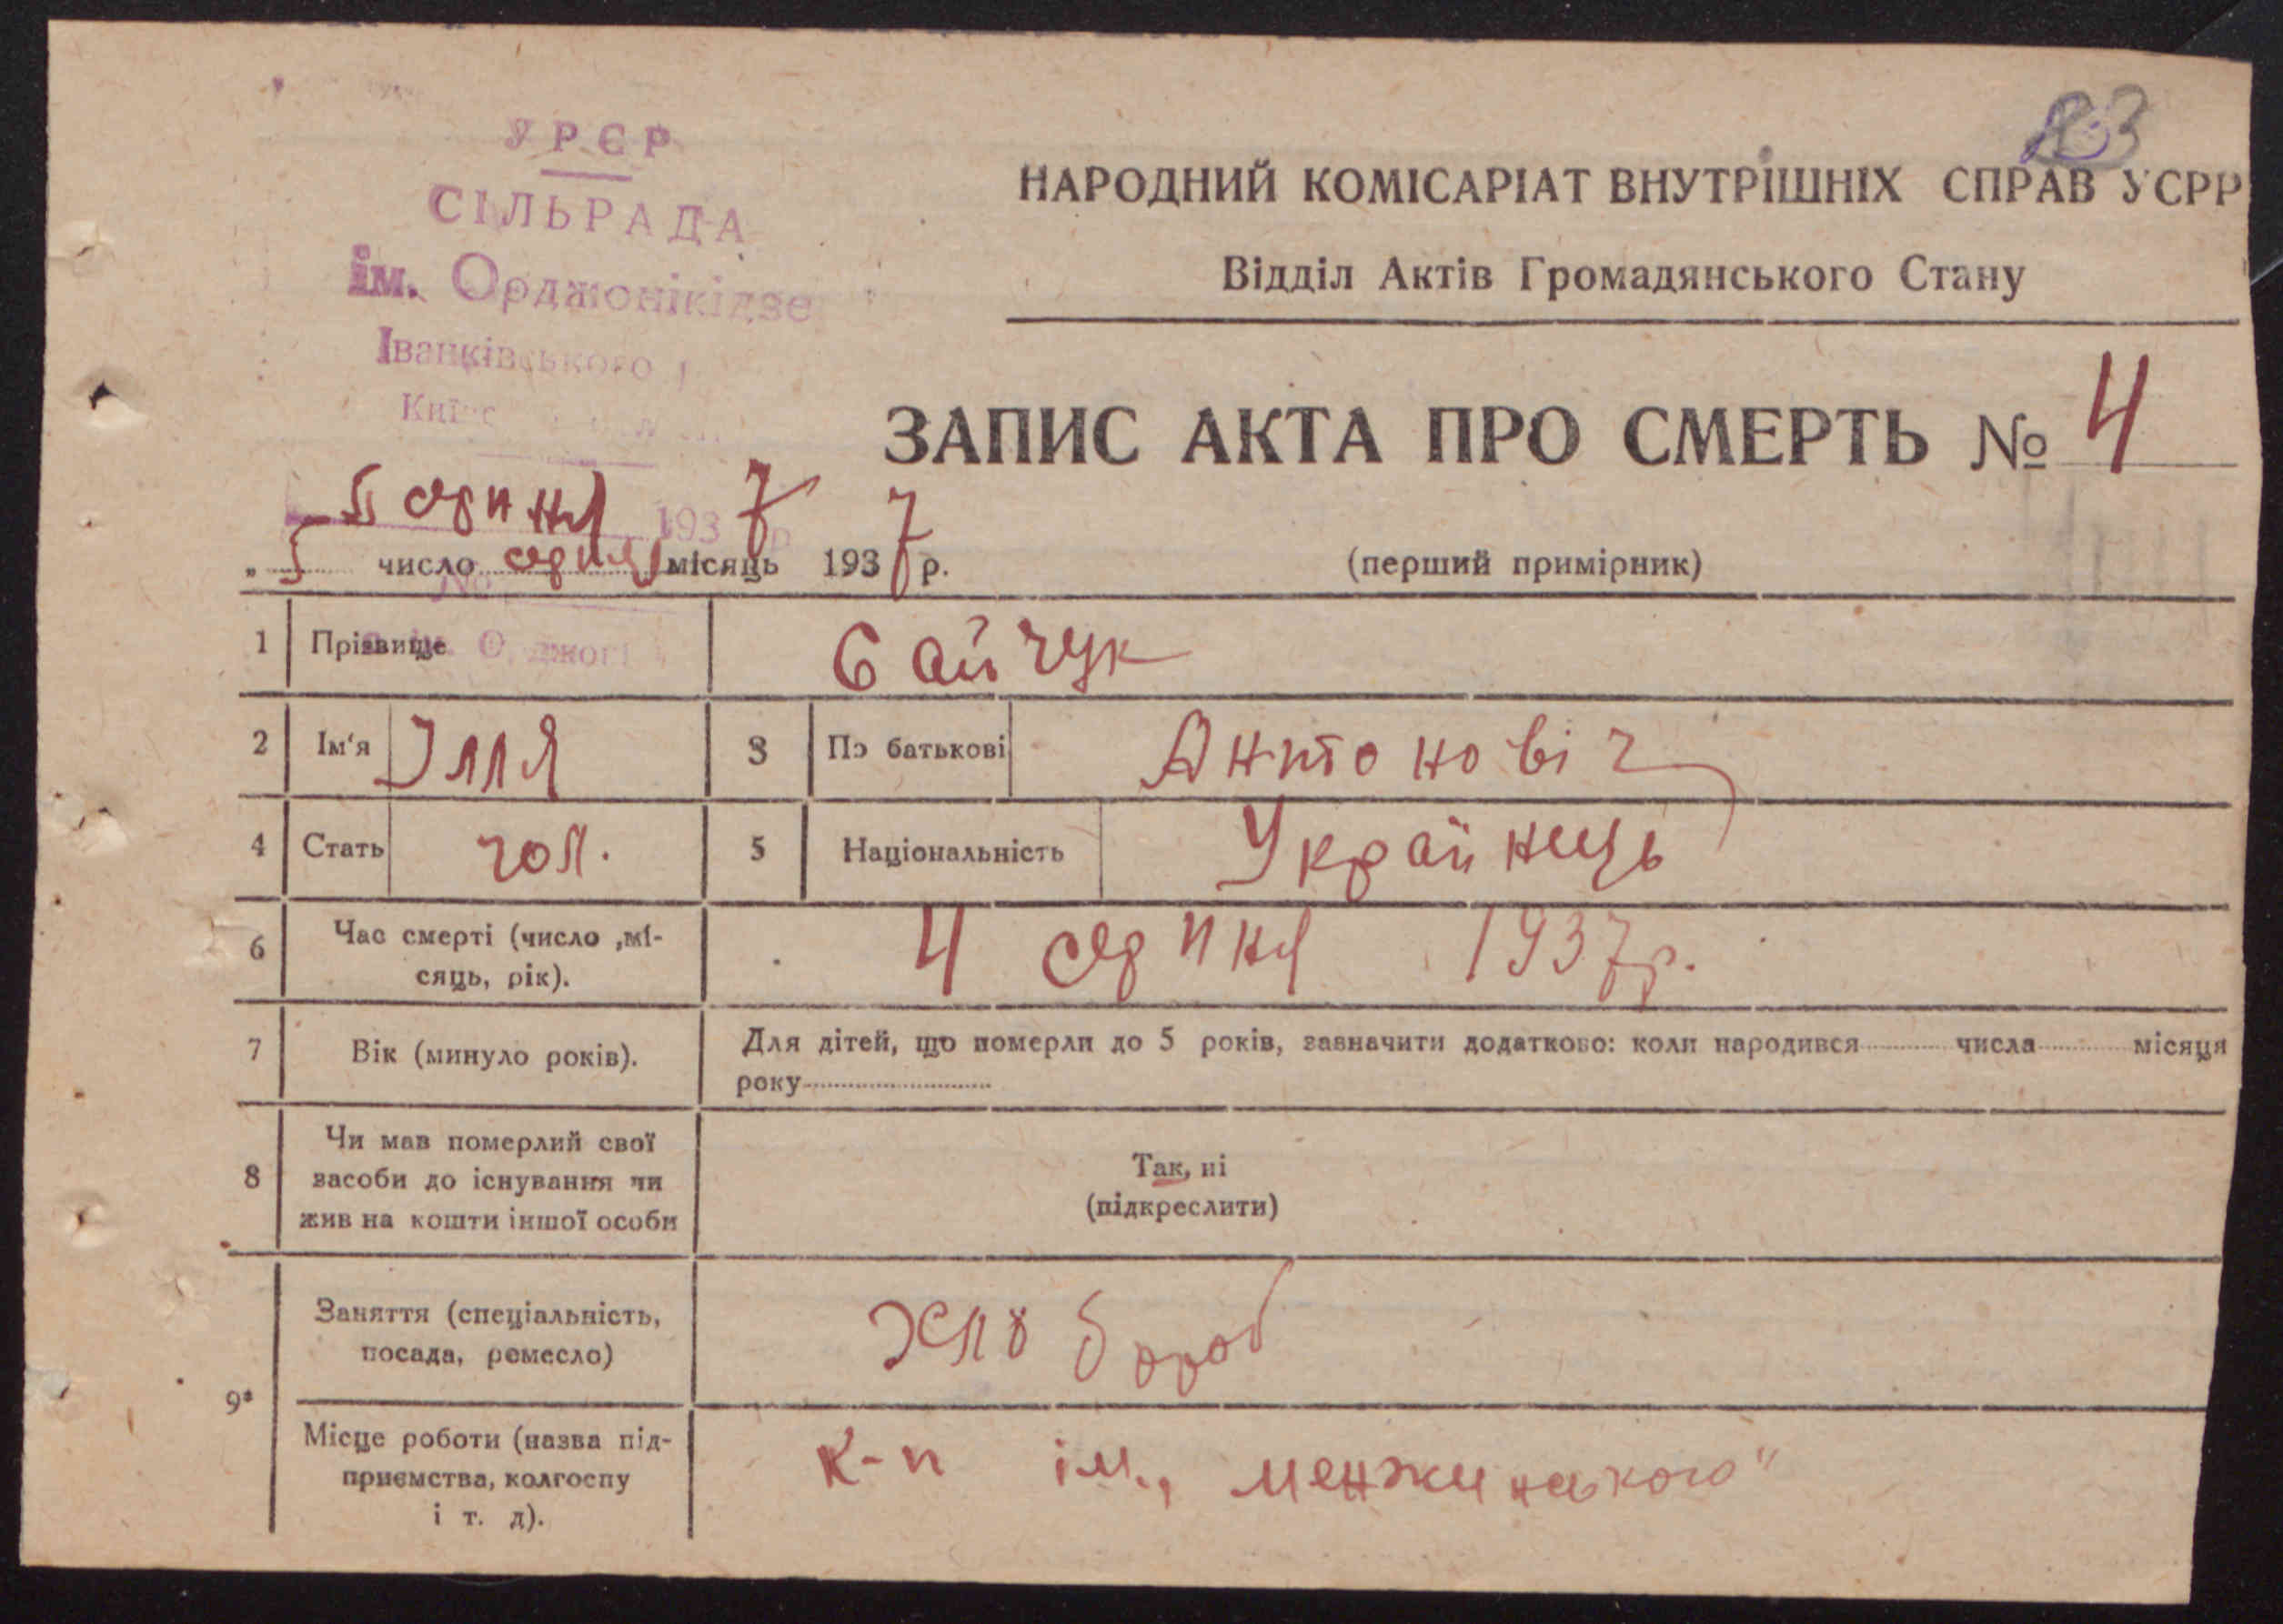 УРСР
СІЛЬРАДА
ім. Орджонікідзе
Іванківського
83
НАРОДНИЙ КОМІСАРІАТ ВНУТРІШНІХ СПРАВ УСРР
Відділ Актів Громадянського Стану
ЗАПИС АКТА ПРО СМЕРТЬ № 4
5 сярпня 1937 р
„ 5 число сярпня місяць 1937 р.
(перший примірник)
1 Прізвище Сайчук
2 Ім'я Ілля 3 По батькові Антоновіч
4 Стать чол. 5 Національність Українець
6 Час смерті (число ,мі-
сяць, рік). 4 сярпня 1937р.
7 Вік (минуло років). Для дітей, що померли до 5 років, зазначити додатково: коли народився числа місяця
року
8 Чи мав померлий свої
засоби до існування чи
жив на кошти іншої особи
Так, ні
(підкреслити)
9* Заняття (спеціальність,
посада, ремесло) хлібороб
Місце роботи (назва під-
приємства, колгоспу
і т. д).
к-п ім., менжинського"